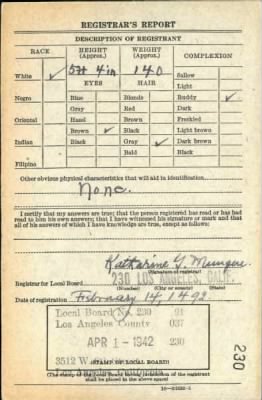 REGISTRAR'S REPORT
DESCRIPTION OF REGISTRANT
RACE HEIGHT (Approx.) WEIGHT (Approx.) COMPLEXION
White ✓ 5ft 4in 140 Sallow
EYES HAIR Light
Negro Blue Blonde Ruddy ✓
Gray Red Dark
Oriental Hazel Brown Freckled
Brown ✓ Black Light brown
Indian Black Gray ✓ Dark brown
Bald Black
Filipino
Other obvious physical characteristics that will aid in identification
None
I certify that my answers are true; that the person registered has read or has had
read to him his own answers; that I have witnessed his signature or mark and that
all of his answers of which I have knowledge are true, except as follows:
Katharine
(Signature of registrar)
Registrar for Local Board 230 LOS ANGELES, CALIF.
(Number) (City or county) (State)
Date of registration February 14, 1942
Local Board No. 230 91
Los Angeles County 037
APR 1 - 1942 230
3512 W.
(STAMP OF LOCAL BOARD)
(The stamp of the Local Board having jurisdiction of the registrant
shall be placed in the above space)
230